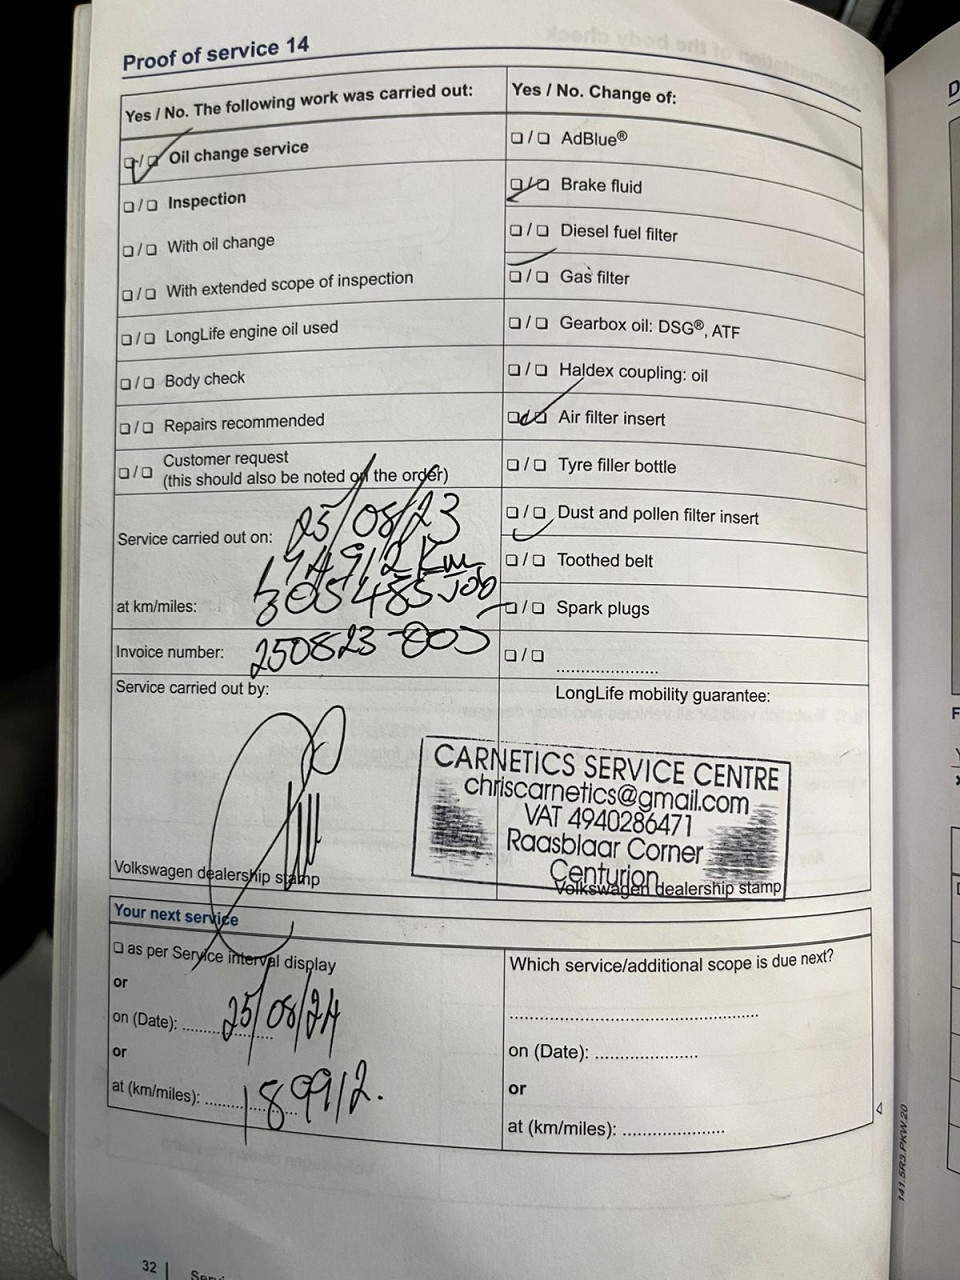 Proof of service 14
Yes / No. The following work was carried out:
❏ / ❏ Oil change service
❏ / ❏ Inspection
❏ / ❏ With oil change
❏ / ❏ With extended scope of inspection
❏ / ❏ LongLife engine oil used
❏ / ❏ Body check
❏ / ❏ Repairs recommended
❏ / ❏ Customer request
(this should also be noted on the order)
Service carried out on: 25/08/23
174912 Km
at km/miles: 305485 Job
Invoice number: 250823-005
Service carried out by:
Volkswagen dealership stamp
Yes / No. Change of:
❏ / ❏ AdBlue®
❏ / ❏ Brake fluid
❏ / ❏ Diesel fuel filter
❏ / ❏ Gas filter
❏ / ❏ Gearbox oil: DSG®, ATF
❏ / ❏ Haldex coupling: oil
❏ / ❏ Air filter insert
❏ / ❏ Tyre filler bottle
❏ / ❏ Dust and pollen filter insert
❏ / ❏ Toothed belt
❏ / ❏ Spark plugs
❏ / ❏ ....................
LongLife mobility guarantee:
CARNETICS SERVICE CENTRE
chriscarnetics@gmail.com
VAT 4940286471
Raasblaar Corner
Centurion
Volkswagen dealership stamp
Your next service
❏ as per Service interval display
or
on (Date): 25/08/24
or
at (km/miles): 189912.
Which service/additional scope is due next?
.................................................
on (Date): ....................
or
at (km/miles): ....................
141.5R3.PKW.20
32